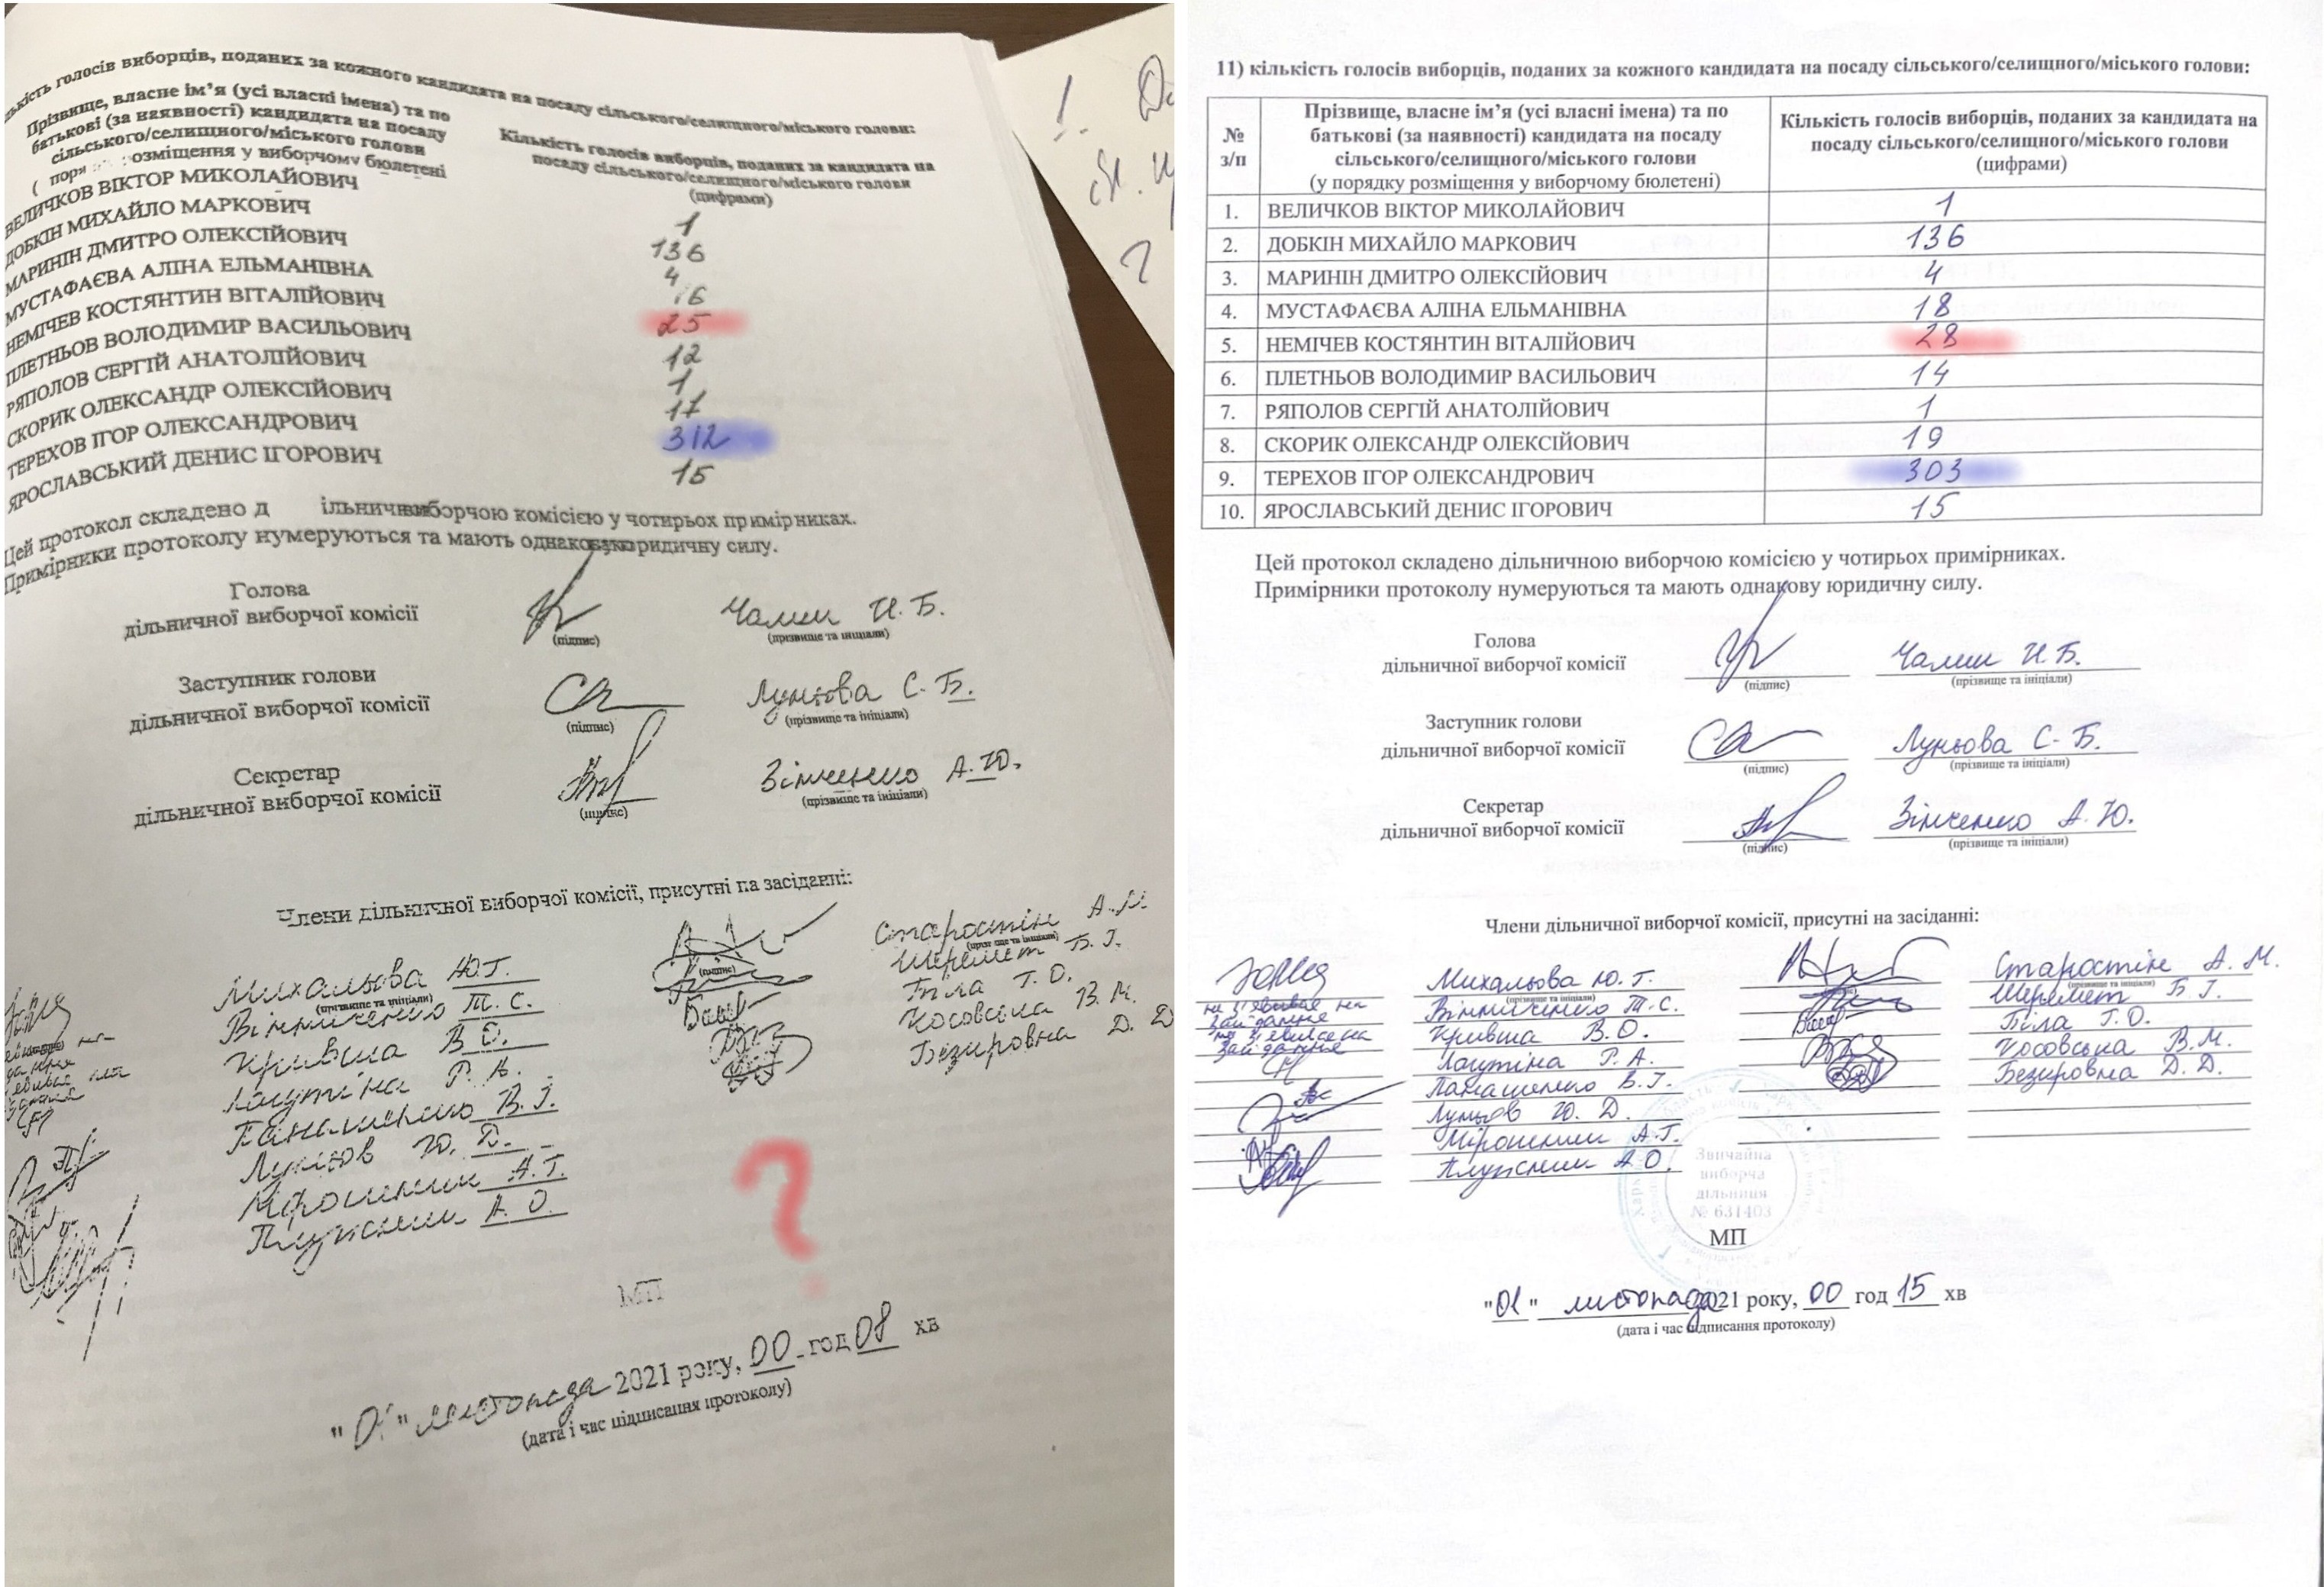 кість голосів виборців, поданих за кожного кандидата на посаду сільського/селищного/міського голови:
Прізвище, власне ім’я (усі власні імена) та по
батькові (за наявності) кандидата на посаду
сільського/селищного/міського голови
( поря розміщення у виборчому бюлетені
Кількість голосів виборців, поданих за кандидата на
посаду сільського/селищного/міського голови
(цифрами)
ВЕЛИЧКОВ ВІКТОР МИКОЛАЙОВИЧ 1
ДОБКІН МИХАЙЛО МАРКОВИЧ 136
МАРИНІН ДМИТРО ОЛЕКСІЙОВИЧ 4
МУСТАФАЄВА АЛІНА ЕЛЬМАНІВНА 16
НЕМІЧЕВ КОСТЯНТИН ВІТАЛІЙОВИЧ 25
ПЛЕТНЬОВ ВОЛОДИМИР ВАСИЛЬОВИЧ 12
РЯПОЛОВ СЕРГІЙ АНАТОЛІЙОВИЧ 1
СКОРИК ОЛЕКСАНДР ОЛЕКСІЙОВИЧ 17
ТЕРЕХОВ ІГОР ОЛЕКСАНДРОВИЧ 312
ЯРОСЛАВСЬКИЙ ДЕНИС ІГОРОВИЧ 15
Цей протокол складено д ільничною виборчою комісією у чотирьох примірниках.
Примірники протоколу нумеруються та мають однакову юридичну силу.
Голова
дільничної виборчої комісії Чалий И. Б.
(підпис) (прізвище та ініціали)
Заступник голови
дільничної виборчої комісії Луньова С. Б.
(підпис) (прізвище та ініціали)
Секретар
дільничної виборчої комісії Зінченко А. Ю.
(підпис) (прізвище та ініціали)
Члени дільничної виборчої комісії, присутні на засіданні:
Михальова Ю. Г. Старостін А. М.
(прізвище та ініціали) (підпис) (прізвище та ініціали)
Вінниченко Т. С. Шеремет Б. Г.
Кривша В. О. Біла Г. О.
Лагутіна Р. А. Косовська В. М.
Панашенко В. Г. Безировна Д. Д.
Луньов Ю. Д.
Мірошник А. Г.
Плужник А. О.
?
МП
"01" листопада 2021 року, 00 год 08 хв
(дата і час підписання протоколу)
11) кількість голосів виборців, поданих за кожного кандидата на посаду сільського/селищного/міського голови:
№
з/п
Прізвище, власне ім’я (усі власні імена) та по
батькові (за наявності) кандидата на посаду
сільського/селищного/міського голови
(у порядку розміщення у виборчому бюлетені)
Кількість голосів виборців, поданих за кандидата на
посаду сільського/селищного/міського голови
(цифрами)
1. ВЕЛИЧКОВ ВІКТОР МИКОЛАЙОВИЧ 1
2. ДОБКІН МИХАЙЛО МАРКОВИЧ 136
3. МАРИНІН ДМИТРО ОЛЕКСІЙОВИЧ 4
4. МУСТАФАЄВА АЛІНА ЕЛЬМАНІВНА 18
5. НЕМІЧЕВ КОСТЯНТИН ВІТАЛІЙОВИЧ 28
6. ПЛЕТНЬОВ ВОЛОДИМИР ВАСИЛЬОВИЧ 14
7. РЯПОЛОВ СЕРГІЙ АНАТОЛІЙОВИЧ 1
8. СКОРИК ОЛЕКСАНДР ОЛЕКСІЙОВИЧ 19
9. ТЕРЕХОВ ІГОР ОЛЕКСАНДРОВИЧ 303
10. ЯРОСЛАВСЬКИЙ ДЕНИС ІГОРОВИЧ 15
Цей протокол складено дільничною виборчою комісією у чотирьох примірниках.
Примірники протоколу нумеруються та мають однакову юридичну силу.
Голова
дільничної виборчої комісії Чалий И. Б.
(підпис) (прізвище та ініціали)
Заступник голови
дільничної виборчої комісії Луньова С. Б.
(підпис) (прізвище та ініціали)
Секретар
дільничної виборчої комісії Зінченко А. Ю.
(підпис) (прізвище та ініціали)
Члени дільничної виборчої комісії, присутні на засіданні:
Михальова Ю. Г. Старостін А. М.
(прізвище та ініціали) (прізвище та ініціали)
Вінниченко Т. С. Шеремет Б. Г.
Кривша В. О. Біла Г. О.
Лагутіна Р. А. Косовська В. М.
Панашенко В. Г. Безировна Д. Д.
Луньов Ю. Д.
Мірошник А. Г.
Плужник А. О.
Звичайна
виборча
дільниця
№ 631403
МП
"01" листопада 2021 року, 00 год 15 хв
(дата і час підписання протоколу)